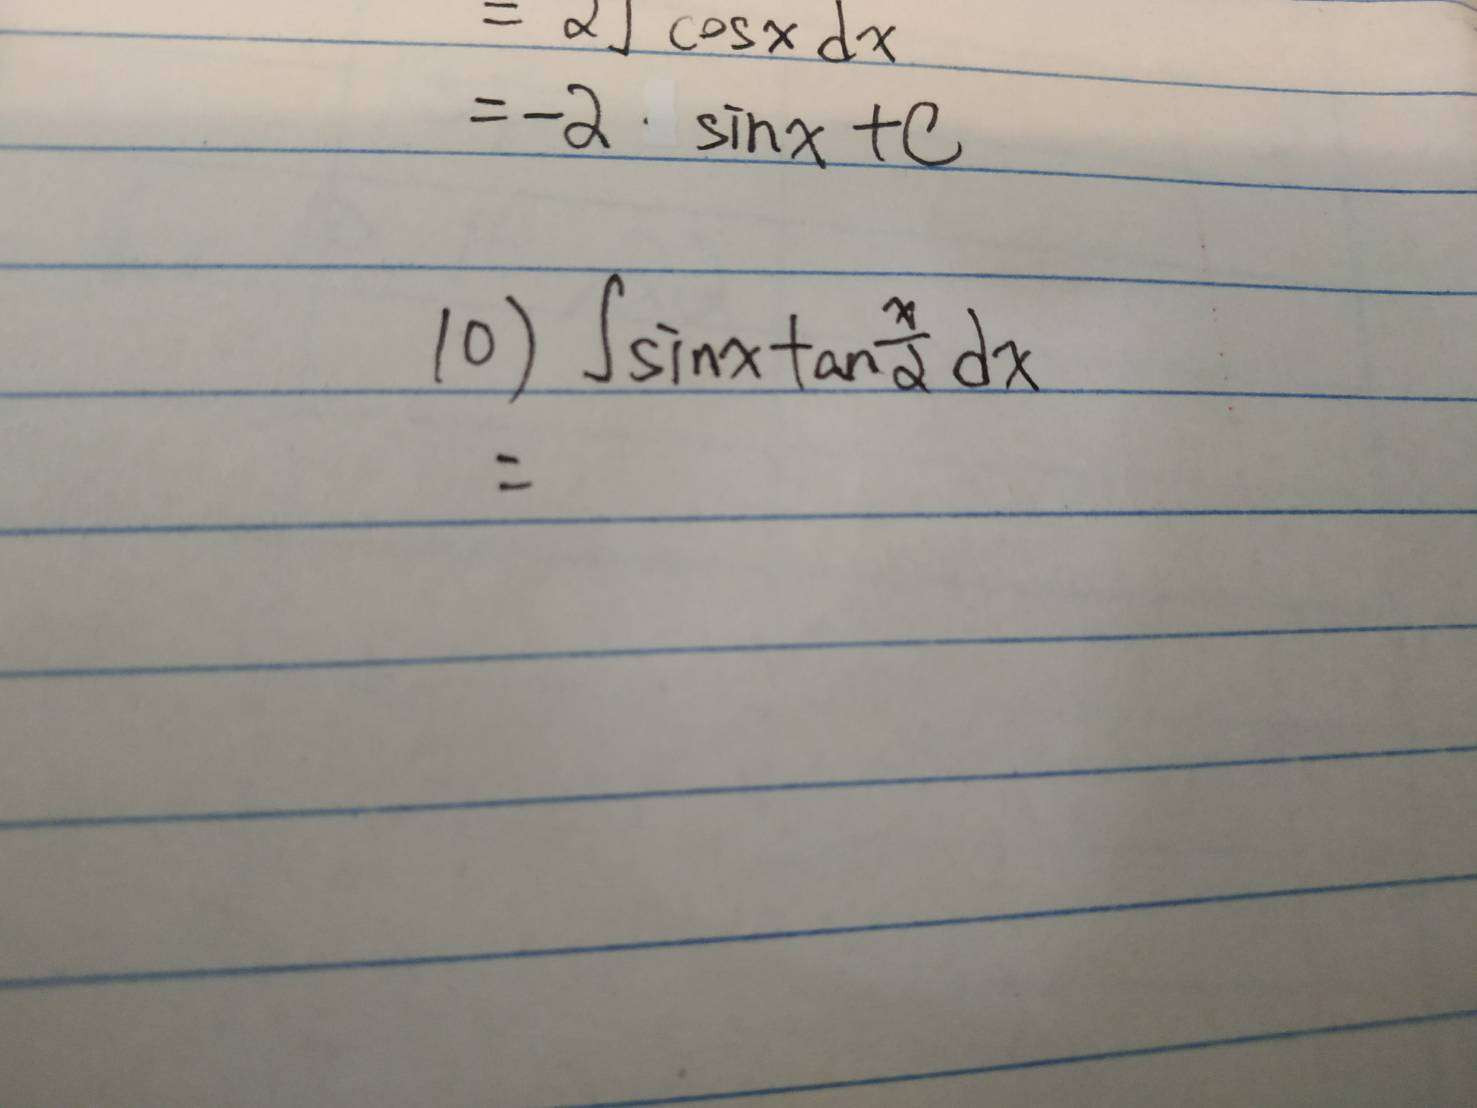 = 2∫ cosx dx
= -2 · sinx + C
10) ∫sinx tan x/2 dx
=